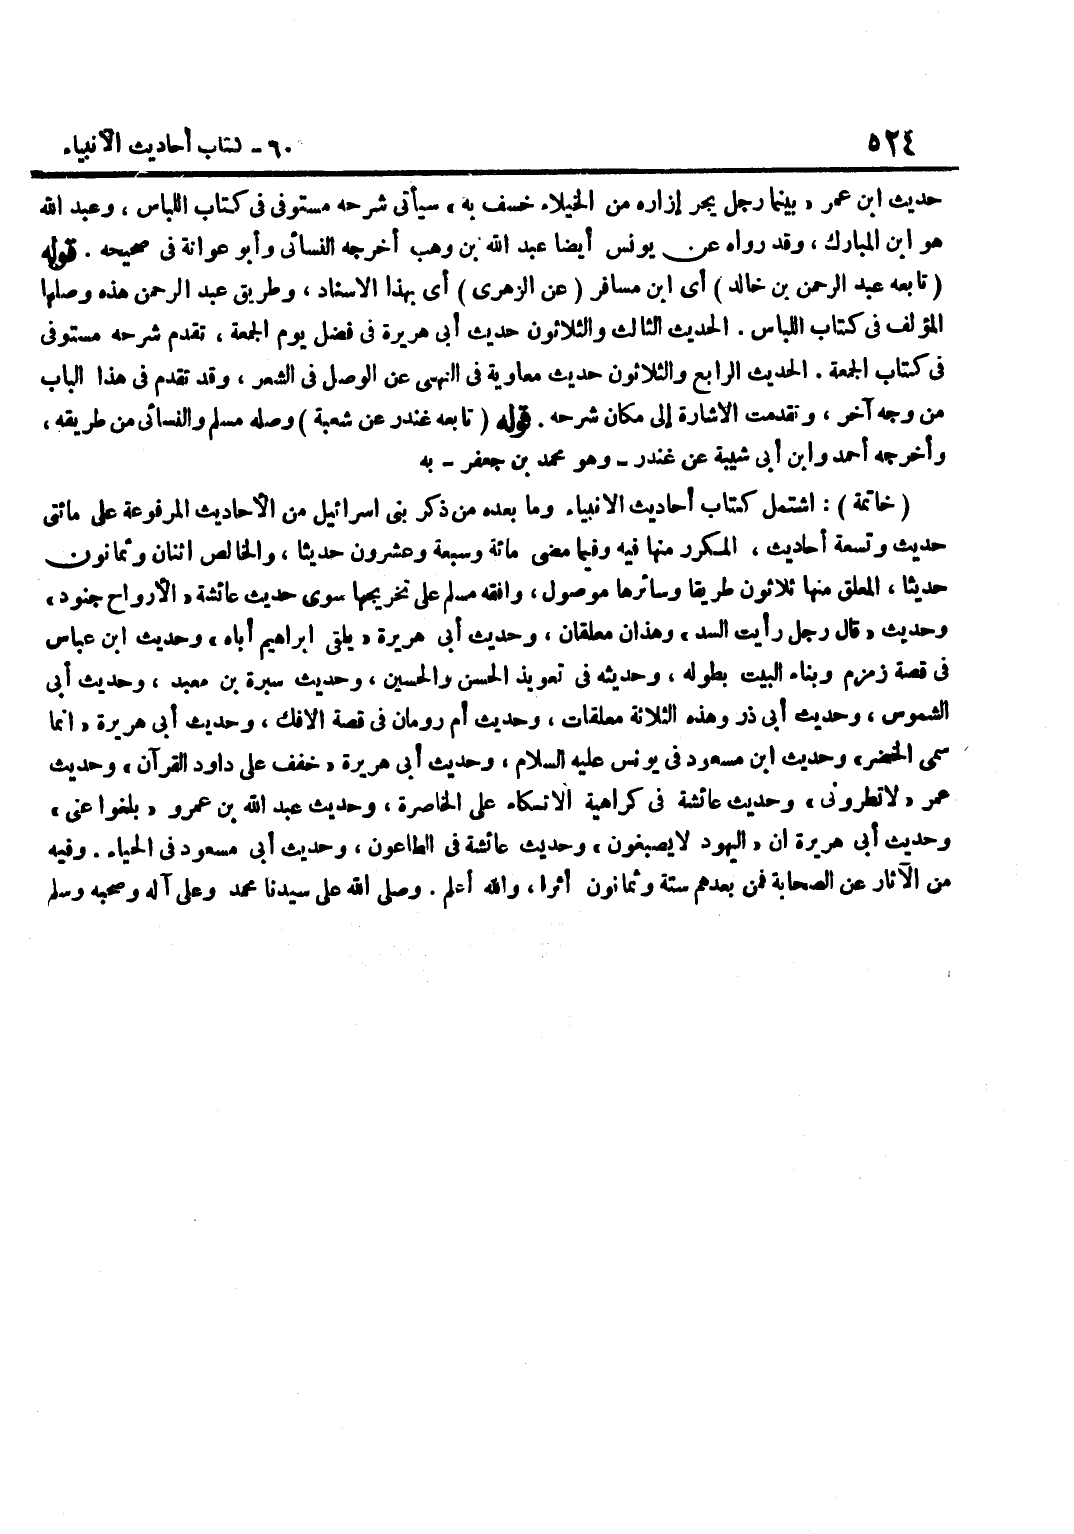 ٥٢٤
٦٠ - كتاب أحاديث الأنبياء
حديث ابن عمر « بينما رجل يجر إزاره من الخيلاء خسف به » سيأتى شرحه مستوفى فى كتاب اللباس ، وعبد الله
هو ابن المبارك ، وقد رواه عن يونس أيضا عبد الله بن وهب أخرجه النسائى وأبو عوانة فى صحيحه . قوله
( تابعه عبد الرحمن بن خالد ) أى ابن مسافر ( عن الزهرى ) أى بهذا الاسناد ، وطريق عبد الرحمن هذه وصلها
المؤلف فى كتاب اللباس . الحديث الثالث والثلاثون حديث أبى هريرة فى فضل يوم الجمعة ، تقدم شرحه مستوفى
فى كتاب الجمعة . الحديث الرابع والثلاثون حديث معاوية فى النهى عن الوصل فى الشعر ، وقد تقدم فى هذا الباب
من وجه آخر ، وتقدمت الاشارة إلى مكان شرحه . قوله ( تابعه غندر عن شعبة ) وصله مسلم والنسائى من طريقه ،
وأخرجه أحمد وابن أبى شيبة عن غندر - وهو محمد بن جعفر - به
( خاتمة ) : اشتمل كتاب أحاديث الانبياء وما بعده من ذكر بنى اسرائيل من الأحاديث المرفوعة على مائتى
حديث وتسعة أحاديث ، المكرر منها فيه وفيما مضى مائة وسبعة وعشرون حديثا ، والخالص اثنان وثمانون
حديثا ، المعلق منها ثلاثون طريقا وسائرها موصول ، وافقه مسلم على تخريجها سوى حديث عائشة « الأرواح جنود »
وحديث « قال رجل رأيت السد » وهذان معلقان ، وحديث أبى هريرة « يلقى ابراهيم أباه » وحديث ابن عباس
فى قصة زمزم وبناء البيت بطوله ، وحديثه فى تعويذ الحسن والحسين ، وحديث سبرة بن معبد ، وحديث أبى
الشموس ، وحديث أبى ذر وهذه الثلاثة معلقات ، وحديث أم رومان فى قصة الافك ، وحديث أبى هريرة « انما
سمى الخضر » وحديث ابن مسعود فى يونس عليه السلام ، وحديث أبى هريرة « خفف على داود القرآن » وحديث
عمر « لاتطرونى » وحديث عائشة فى كراهية الاتكاء على الخاصرة ، وحديث عبد الله بن عمرو « بلغوا عنى »
وحديث أبى هريرة ان « اليهود لايصبغون » وحديث عائشة فى الطاعون ، وحديث أبى مسعود فى الحياء . وفيه
من الآثار عن الصحابة فمن بعدهم ستة وثمانون أثرا ، والله أعلم . وصلى الله على سيدنا محمد وعلى آله وصحبه وسلم